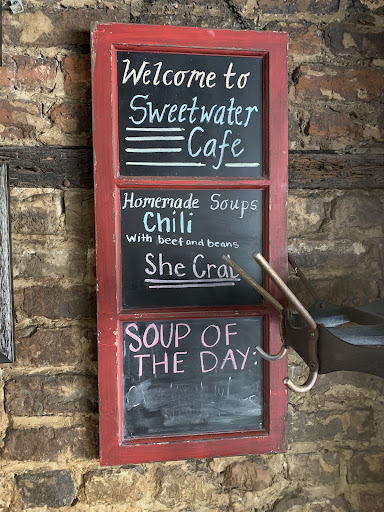 Welcome to
Sweetwater
Cafe
Homemade Soups
Chili
With beef and beans
She Crab
SOUP OF
THE DAY: